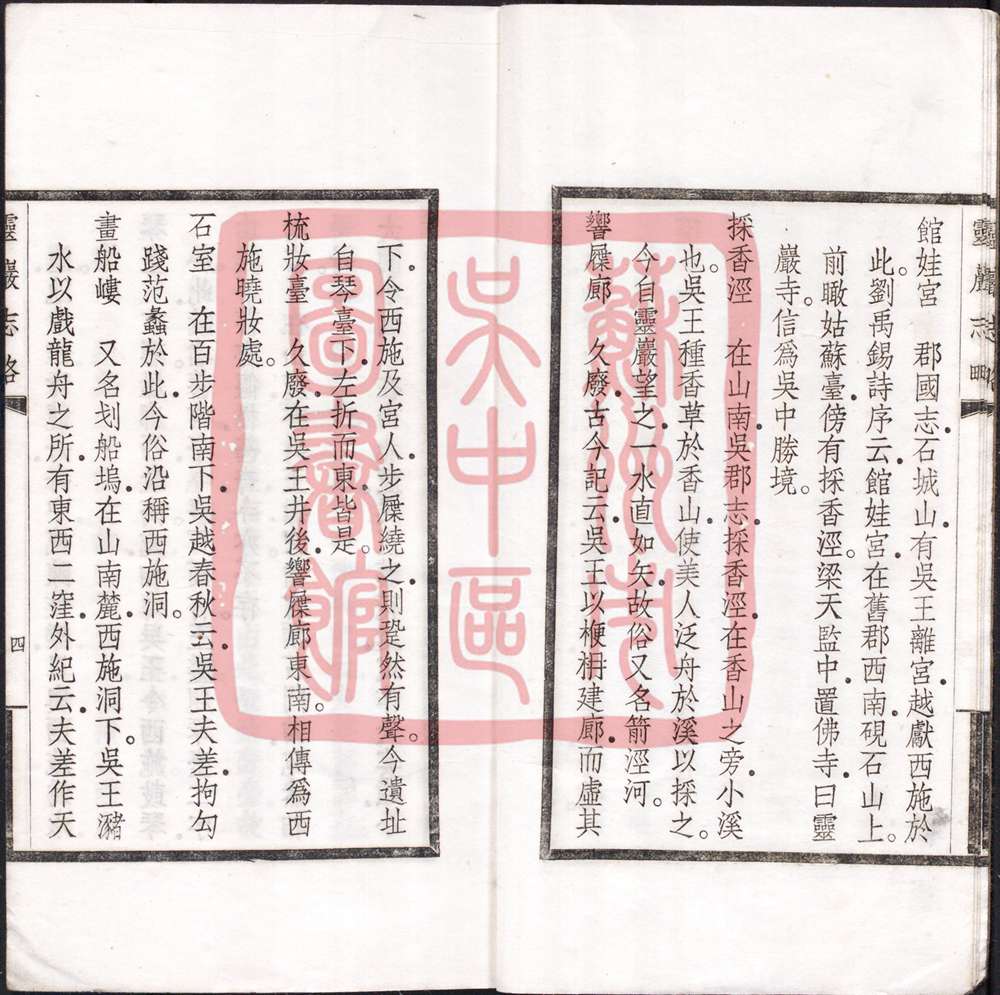 靈巖志略
館娃宮　郡國志．石城山．有吳王離宮．越獻西施於
此。劉禹錫詩序云．館娃宮．在舊郡西南．硯石山上。
前瞰姑蘇臺．傍有採香涇。梁天監中．置佛寺．曰靈
巖寺。信爲吳中勝境。
採香涇　在山南．吳郡志．採香涇．在香山之旁．小溪
也。吳王種香草於香山．使美人泛舟於溪以採之。
今自靈巖望之．一水直如矢．故俗又名箭涇河。
響屧廊　久廢．古今記云．吳王以楩梓建廊．而虛其
下．令西施及宮人．步屧繞之．則跫然有聲。今遺址
自琴臺下．左折而東．皆是。
梳妝臺　久廢．在吳王井後．響屧廊東南。相傳爲西
施曉妝處。
石室　在百步階南下．吳越春秋云．吳王夫差．拘勾
踐范蠡於此．今俗沿稱西施洞。
畫船嶁　又名划船塢．在山南麓．西施洞下。吳王瀦
水以戲龍舟之所．有東西二窪．外紀云．夫差作天
靈巖志略
四
蘇州市
吳中區
圖書館